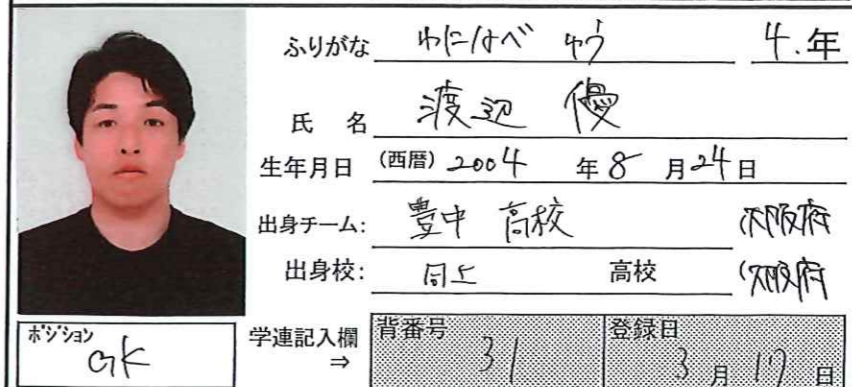 ふりがな わたなべ ゆう 4.年
氏 名 渡辺 優
生年月日 (西暦) 2004 年 8 月 24 日
出身チーム: 豊中 高校 (大阪府
出身校: 同上 高校 (大阪府
ポジション GK
学連記入欄 ⇒
背番号 31
登録日 3 月 17 日